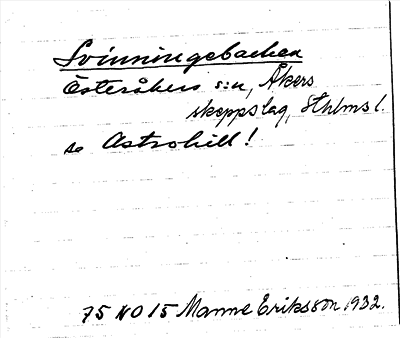 Svinningebacken
Österåkers s:n, Åkers
skeppslag, Sthlms l.
se Astrohill!
75 NO 15 Manne Eriksson 1932.